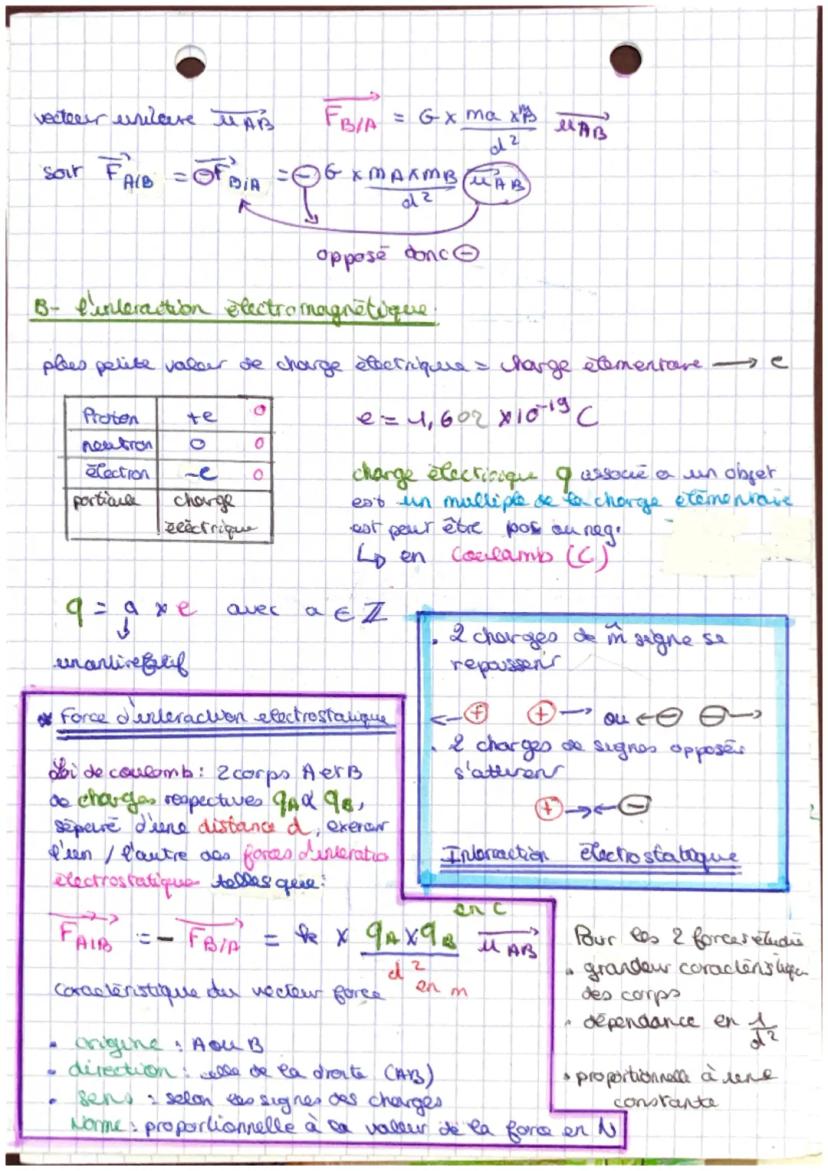 vecteur unitaire u_AB F_B/A = G x ma x B / d² u_AB
soit F_A/B = ⊖F_B/A = ⊖ G x mA x mB / d² u_AB
opposé donc ⊖
B- l'interaction électromagnétique
plus petite valeur de charge électrique = charge élementaire → e
Proton +e 0
neutron 0 0
électron -e 0
particule charge
électrique
e = 1,602 x 10^-19 C
charge électrique q associé a un objet
est un multiple de la charge élémentaire
est peut être pos ou neg.
↳ en Coulomb (C)
q = a x e avec a ∈ Z
↓
un entier relatif
. 2 charges de m̂ signe se
repoussent
← ⊕ ⊕ → ou ← ⊖ ⊖ →
. 2 charges de signes opposés
s'attirent
⊕ → ← ⊖
Interaction électrostatique
* Force d'interaction electrostatique
Loi de coulomb : 2 corps A et B
de charges respectives qA & qB,
séparé d'une distance d, exercent
l'un / l'autre des forces d'interatio
électrostatique telles que :
F_A/B = - F_B/A = k x qA x qB / d² u_AB
en C
en m
caractéristique du vecteur force
• origine : A ou B
• direction : celle de la droite (AB)
• sens : selon les signes des charges
Norme : proportionnelle à la valeur de la force en N
Pour les 2 forces étudié
• grandeur caractéristique
des corps
• dépendance en 1/d²
• proportionnelle à une
constante